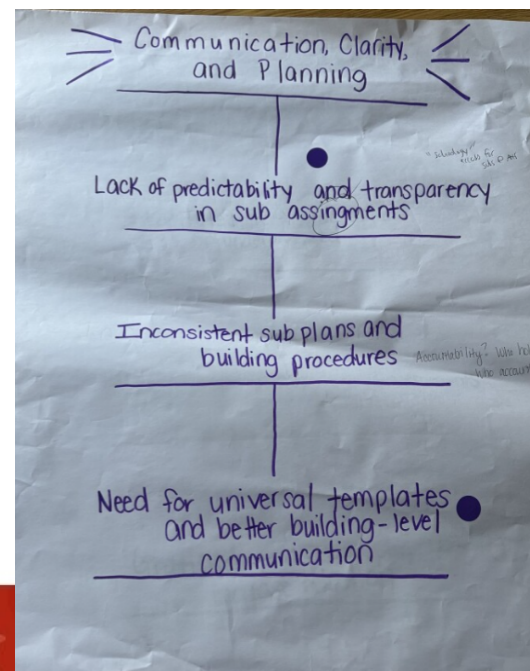 Communication, Clarity,
and Planning
needs for
Lack of predictability and transparency
in sub assingments
Inconsistent sub plans and
building procedures
Accountability? Who
Who
Need for universal templates
and better building-level
communication